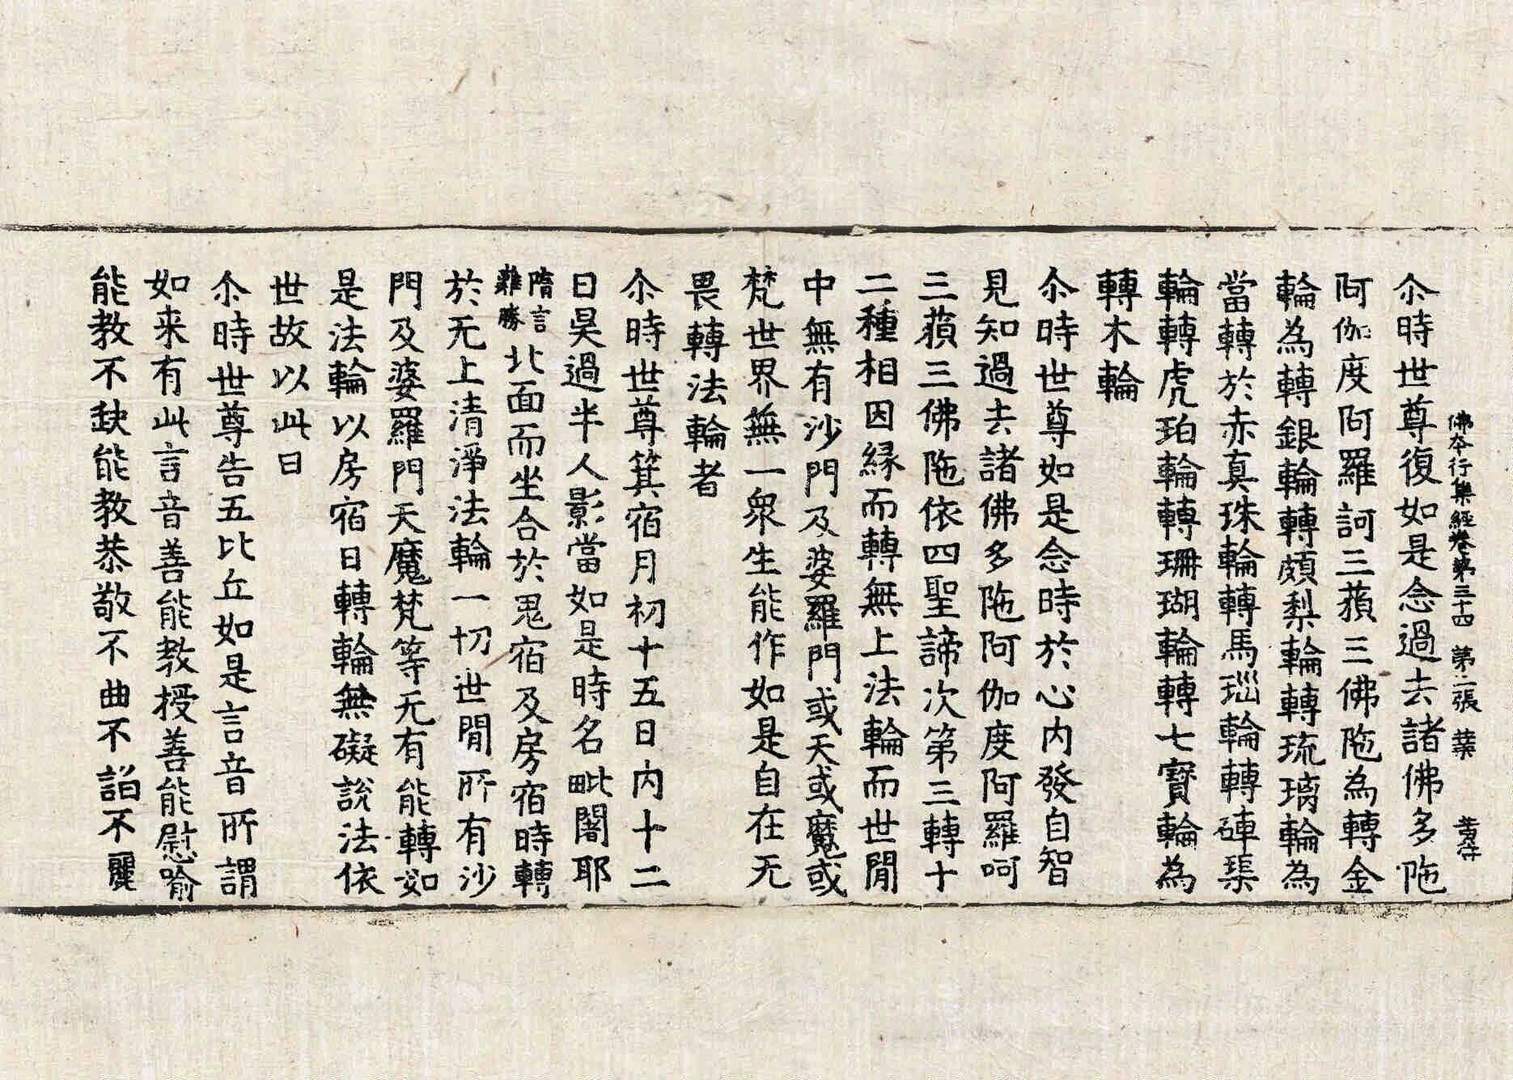 佛本行集經卷第三十四 第二張 葉
尒時世尊復如是念過去諸佛多陁
阿伽度阿羅訶三藐三佛陁為轉金
輪為轉銀輪轉頗梨輪轉琉璃輪為
當轉於赤真珠輪轉馬瑙輪轉硨磲
輪轉虎珀輪轉珊瑚輪轉七寳輪為
轉木輪
尒時世尊如是念時於心內發自智
見知過去諸佛多陁阿伽度阿羅呵
三藐三佛陁依四聖諦次第三轉十
二種相因縁而轉無上法輪而世閒
中無有沙門及婆羅門或天或魔或
梵世界無一衆生能作如是自在无
畏轉法輪者
尒時世尊箕宿月初十五日內十二
日昃過半人影當如是時名毗闍耶
隋言
難勝
北面而坐合於鬼宿及房宿時轉
於无上清淨法輪一切世閒所有沙
門及婆羅門天魔梵等无有能轉如
是法輪以房宿日轉輪無礙說法依
世故以此日
尒時世尊告五比丘如是言音所謂
如来有此言音善能教授善能慰喻
能教不缺能教恭敬不曲不諂不麗